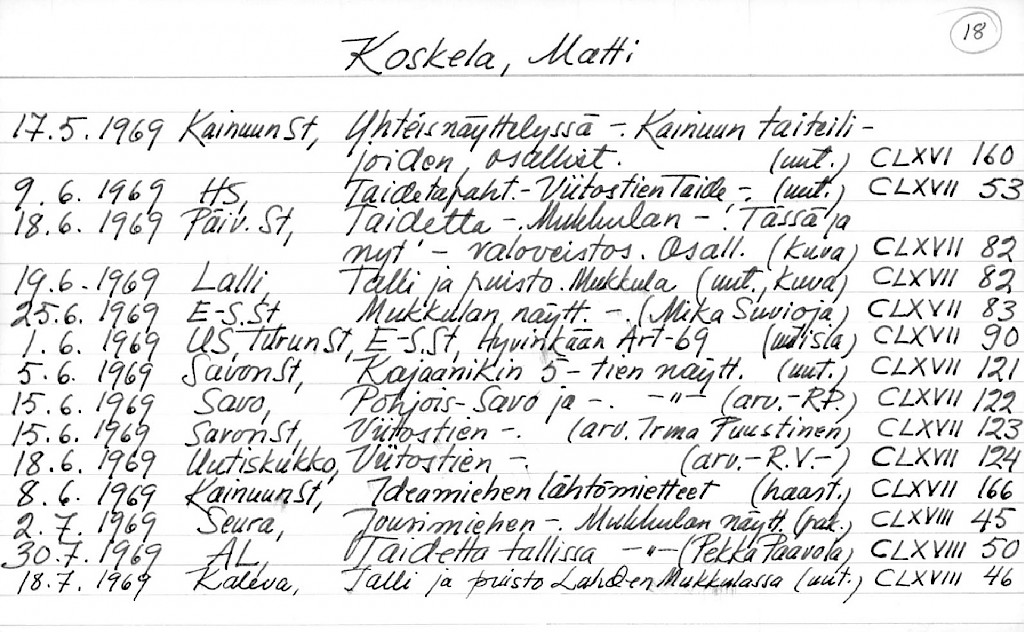 18
Koskela, Matti
17.5.1969 KainuunSt, Yhteisnäyttelyssä -. Kainuun taiteili-
joiden, osallist. (uut.) CLXVI 160
9.6.1969 HS, Taidetapaht.- Viitostien Taide -. (uut.) CLXVII 53
18.6.1969 Päiv.St, Taidetta -. Mukkulan -. 'Tässä ja
nyt' - valoveistos. Osall. (kuva) CLXVII 82
19.6.1969 Lalli, Talli ja puisto. Mukkula (uut., kuva) CLXVII 82
25.6.1969 E-S.St Mukkulan näytt. -. (Mika Suvioja) CLXVII 83
1.6.1969 US, TurunSt, E-S.St, Hyvinkään Art-69 (uutisia) CLXVII 90
5.6.1969 SavonSt, Kajaanikin 5-tien näytt. (uut.) CLXVII 121
15.6.1969 Savo, Pohjois-Savo ja -. -"- (arv.-R.P.) CLXVII 122
15.6.1969 SavonSt, Viitostien -. (arv. Irma Puustinen) CLXVII 123
18.6.1969 Uutiskukko, Viitostien -. (arv.- R.V.-) CLXVII 124
8.6.1969 KainuunSt, Ideamiehen lähtömietteet (haast.) CLXVII 166
2.7.1969 Seura, Jousimiehen -. Mukkulan näytt. (pak.) CLXVIII 45
30.7.1969 AL, Taidetta tallissa -"- (Pekka Paavola) CLXVIII 50
18.7.1969 Kaleva, Talli ja puisto Lahden Mukkulassa (uut.) CLXVIII 46